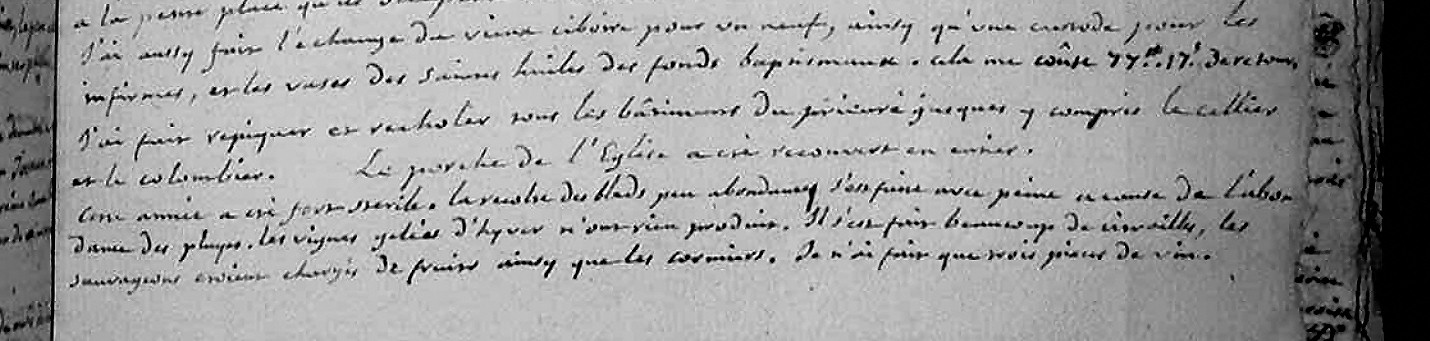 a la peme place qu'il
J'ai aussy fait l'echange du vieux ciboire pour un neuf, ainsy qu'une custode pour les
infirmes, et les vases des saintes huiles des fonds baptismaux. cela me coûte 77lt. 17s. de retour.
J'ai fait repiquer et recholer tous les bâtiments du prieuré jusques y compris le cellier
et le colombier. Le porche de l'Eglise a eté recouvert en entier.
Cette année a eté fort sterile. la recolte des bleds peu abondante s'est faite avec peine a cause de l'abon
dance des pluyes. les vignes gelées d'hyver n'ont rien produit. Il s'est fait beaucoup de citrouilles, les
sauvageons etoient chargés de fruits ainsy que les cormiers. Je n'ai fait que trois pieces de vin.